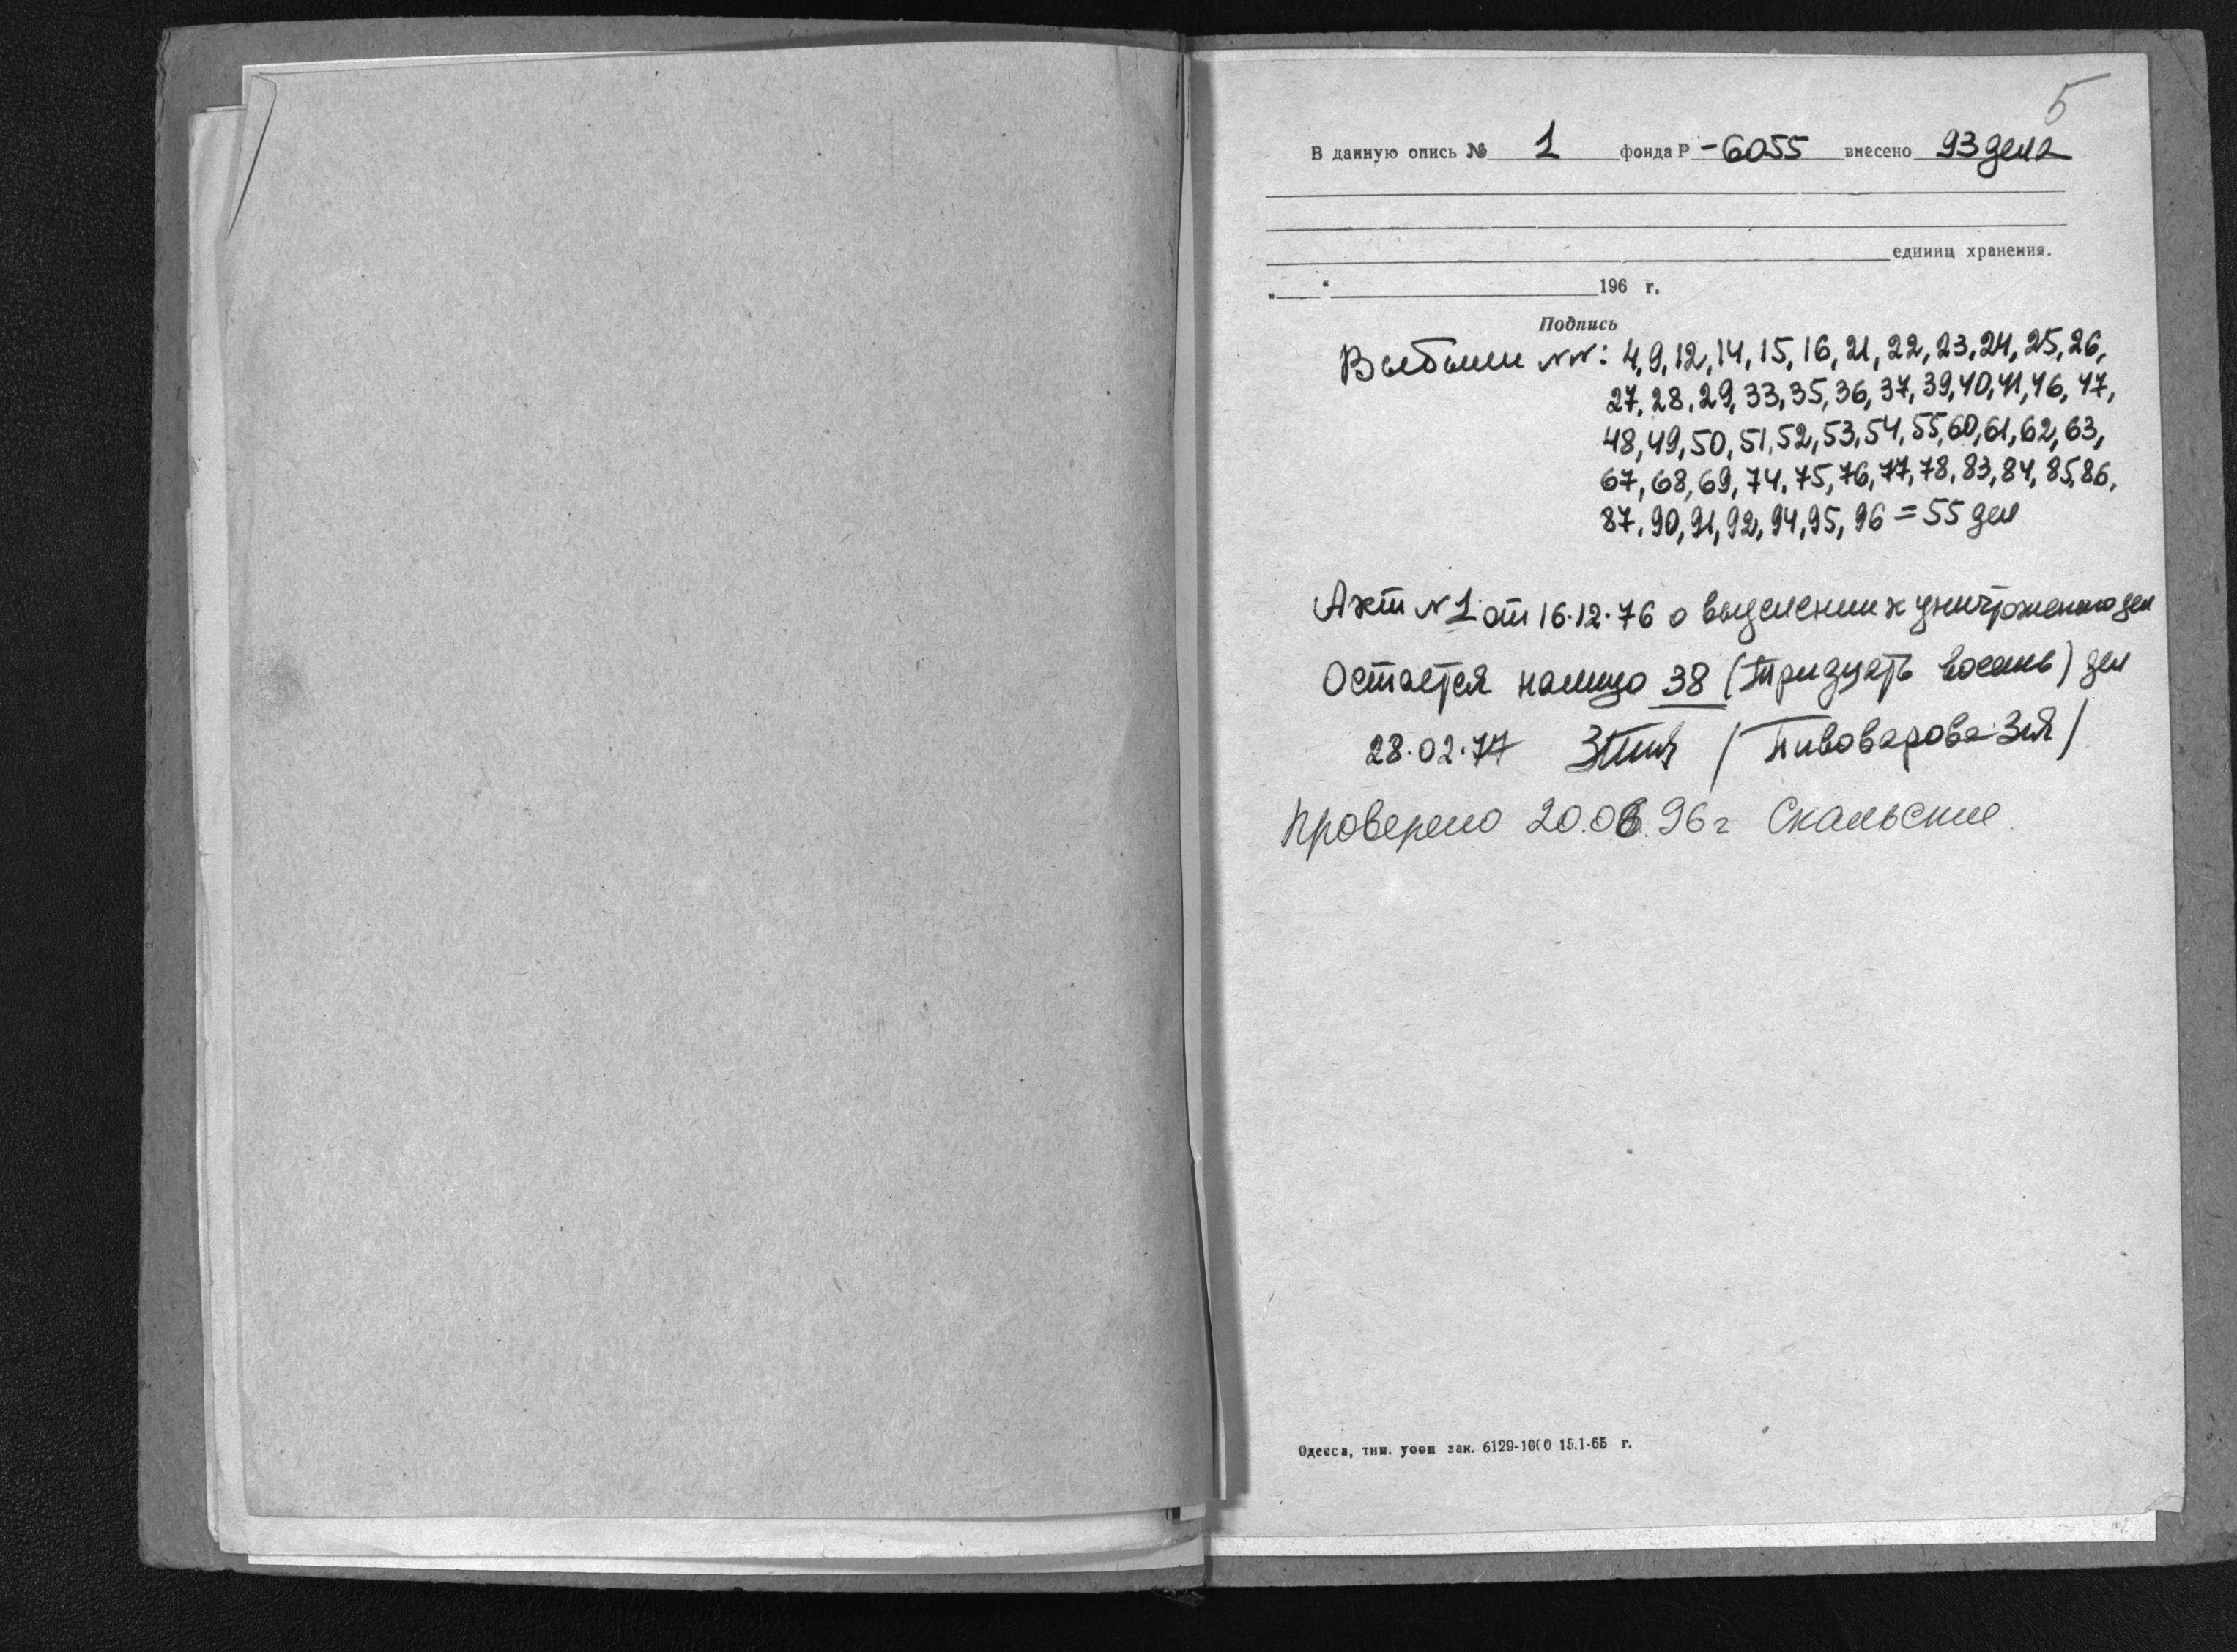 5
В данную опись № 1 фонда Р -6055 внесено 93 дела
единиц хранения.
„ “ 196 г.
Подпись
Выбыли №№: 4, 9, 12, 14, 15, 16, 21, 22, 23, 24, 25, 26,
27, 28, 29, 33, 35, 36, 37, 39, 40, 41, 46, 47,
48, 49, 50, 51, 52, 53, 54, 55, 60, 61, 62, 63,
67, 68, 69, 74, 75, 76, 77, 78, 83, 84, 85, 86,
87, 90, 91, 92, 94, 95, 96 = 55 дел
Акт № 1 от 16.12.76 о выделении к уничтожению дел
Остается налицо 38 (тридцать восемь) дел
28.02.77 / Пивоварова /
Проверено 20.06.96 г
Одесса, тип. уооп зак. 6129-1000 15.1-65 г.